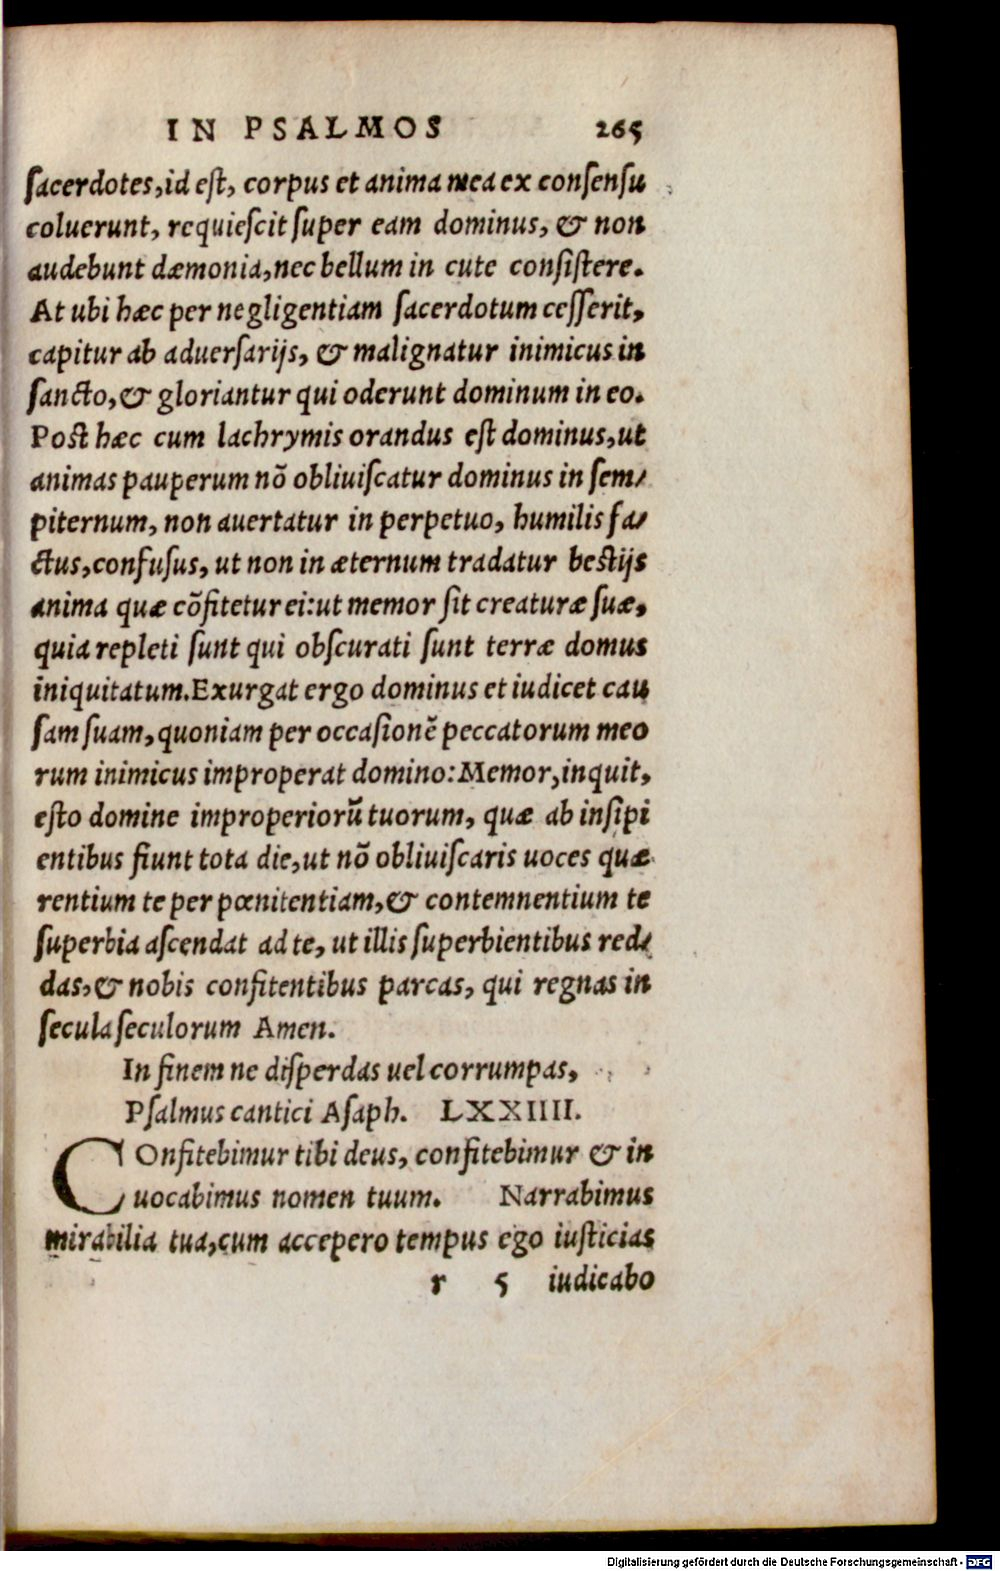 IN PSALMOS 265
sacerdotes, id est, corpus et anima mea ex consensu
coluerunt, requiescit super eam dominus, & non
audebunt dæmonia, nec bellum in cute consistere.
At ubi hæc per negligentiam sacerdotum cesserit,
capitur ab aduersarijs, & malignatur inimicus in
sancto, & gloriantur qui oderunt dominum in eo.
Post hæc cum lachrymis orandus est dominus, ut
animas pauperum nõ obliuiscatur dominus in sem/
piternum, non auertatur in perpetuo, humilis fa/
ctus, confusus, ut non in æternum tradatur bestijs
anima quæ cõfitetur ei: ut memor sit creaturæ suæ,
quia repleti sunt qui obscurati sunt terræ domus
iniquitatum. Exurgat ergo dominus et iudicet cau
sam suam, quoniam per occasionẽ peccatorum meo
rum inimicus improperat domino: Memor, inquit,
esto domine improperiorũ tuorum, quæ ab insipi
entibus fiunt tota die, ut nõ obliuiscaris uoces quæ
rentium te per pœnitentiam, & contemnentium te
superbia ascendat ad te, ut illis superbientibus red/
das, & nobis confitentibus parcas, qui regnas in
secula seculorum Amen.
In finem ne disperdas uel corrumpas,
Psalmus cantici Asaph. LXXIIII.
COnfitebimur tibi deus, confitebimur & in
uocabimus nomen tuum. Narrabimus
mirabilia tua, cum accepero tempus ego iusticias
r 5 iudicabo
Digitalisierung gefördert durch die Deutsche Forschungsgemeinschaft - DFG